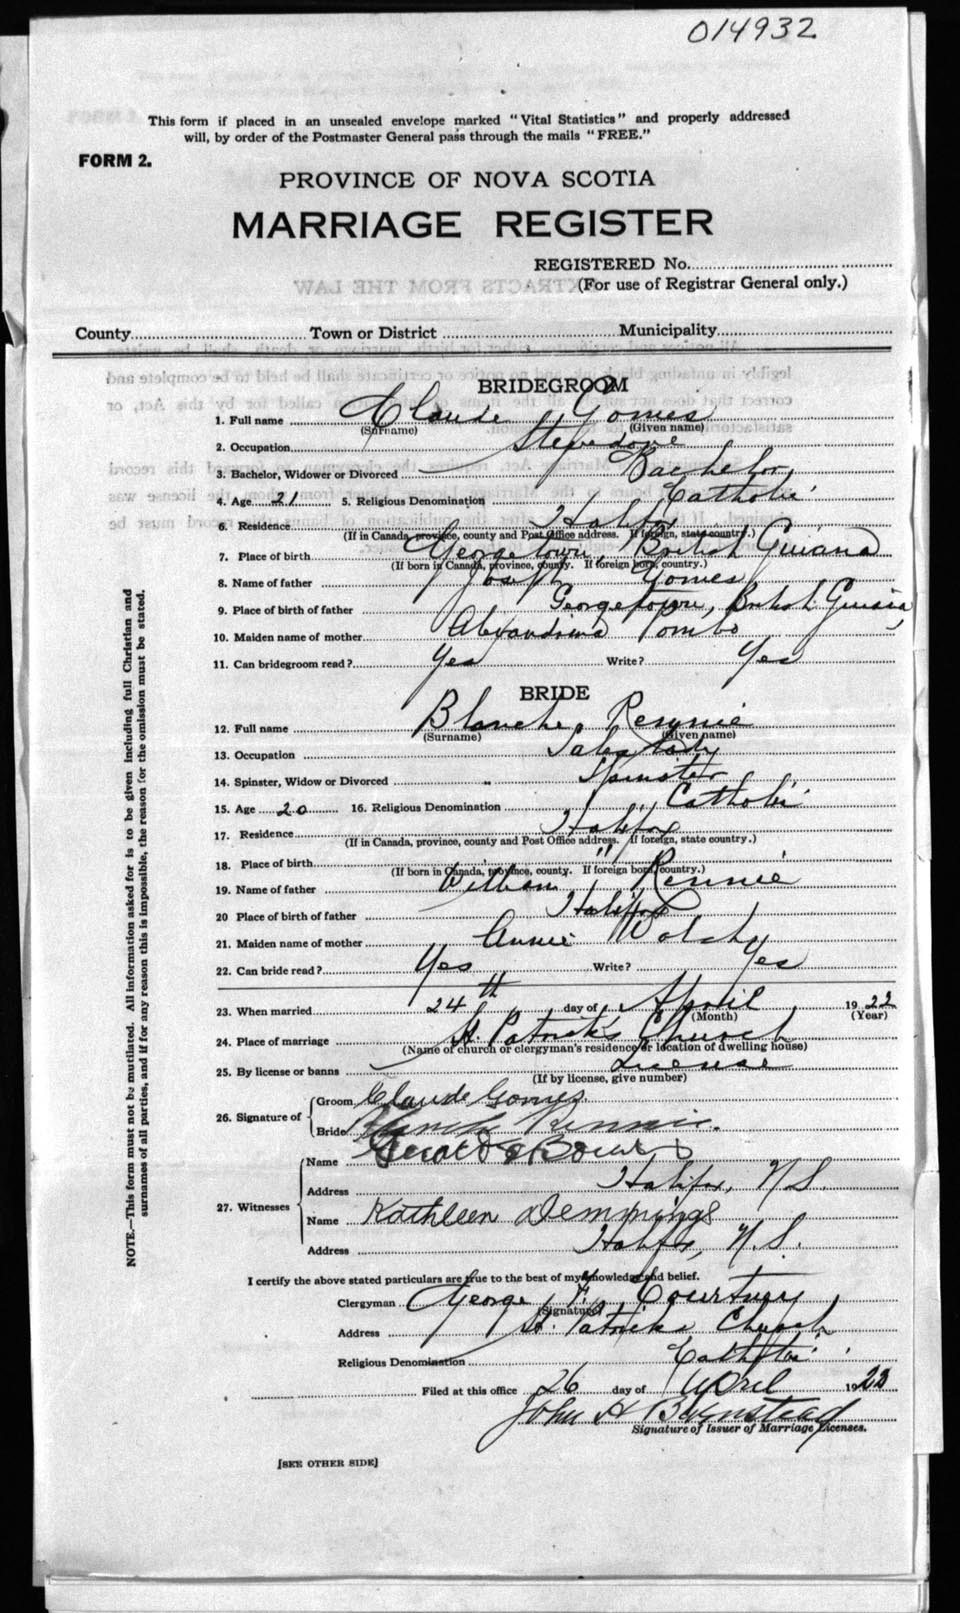 014932
This form if placed in an unsealed envelope marked "Vital Statistics" and properly addressed
will, by order of the Postmaster General pass through the mails "FREE."
FORM 2.
PROVINCE OF NOVA SCOTIA
MARRIAGE REGISTER
REGISTERED No.
(For use of Registrar General only.)
County Town or District Municipality
BRIDEGROOM
1. Full name Claude Gomes
(Surname) (Given name)
2. Occupation Stevedore
3. Bachelor, Widower or Divorced Bachelor
4. Age 21 5. Religious Denomination Catholic
6. Residence Halifax
(If in Canada, province, county and Post Office address. If foreign, state country.)
7. Place of birth Georgetown, British Guiana
(If born in Canada, province, county. If foreign born, country.)
8. Name of father Joseph Gomes
9. Place of birth of father Georgetown, British Guiana
10. Maiden name of mother Alexandrina Pombo
11. Can bridegroom read? Yes Write? Yes
BRIDE
12. Full name Blanche Rennie
(Surname) (Given name)
13. Occupation Sales Lady
14. Spinster, Widow or Divorced Spinster
15. Age 20 16. Religious Denomination Catholic
17. Residence Halifax
(If in Canada, province, county and Post Office address. If foreign, state country.)
18. Place of birth "
(If born in Canada, province, county. If foreign born, country.)
19. Name of father William Rennie
20 Place of birth of father Halifax
21. Maiden name of mother Annie Walsh
22. Can bride read? Yes Write? Yes
23. When married 24th day of April 1922
(Month) (Year)
24. Place of marriage St Patrick's Church
(Name of church or clergyman's residence or location of dwelling house)
25. By license or banns License
(If by license, give number)
26. Signature of Groom Claude Gomes
Bride Blanche Rennie.
27. Witnesses Name
Address Halifax, N.S.
Name Kathleen Demmings
Address Halifax, N.S.
I certify the above stated particulars are true to the best of my knowledge and belief.
Clergyman George F. Courtney
(Signature)
Address St. Patricks Church
Religious Denomination Catholic
Filed at this office 26 day of April 192
John H Barnstead
Signature of Issuer of Marriage Licenses.
[SEE OTHER SIDE]
NOTE.—This form must not be mutilated. All information asked for is to be given including full Christian and
surnames of all parties, and if for any reason this is impossible, the reason for the omission must be stated.